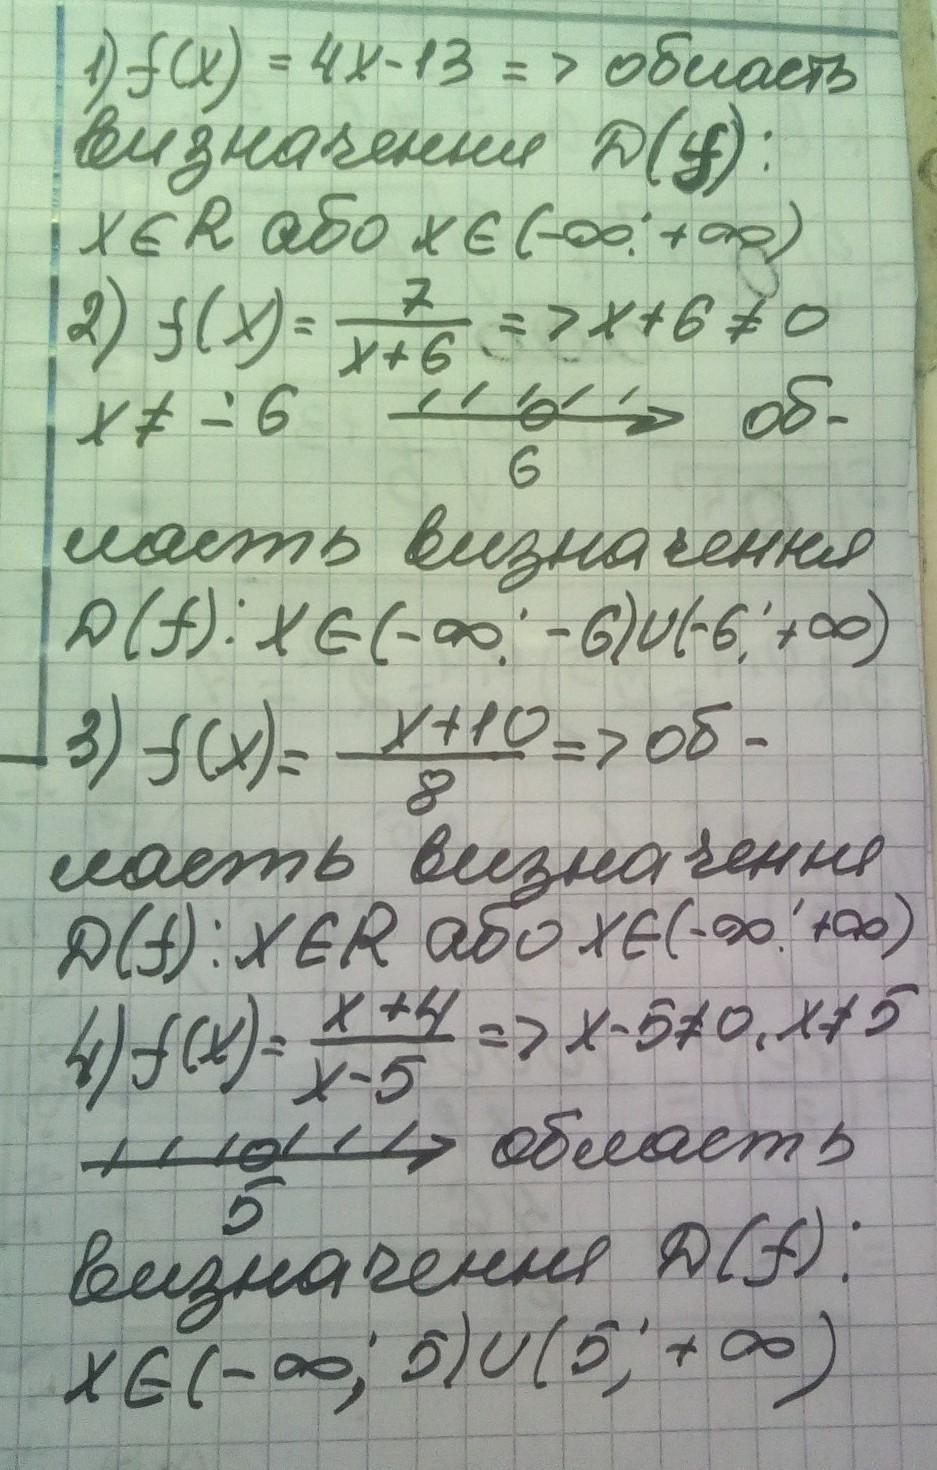 1) f(x) = 4x - 13 => область
визначення D(f):
x∈R або x∈(-∞; +∞)
2) f(x) = 7/(x+6) => x+6 ≠ 0
x ≠ -6 об-
6
ласть визначення
D(f): x∈(-∞; -6)∪(-6; +∞)
3) f(x) = (x+10)/8 => об-
ласть визначення
D(f): x∈R або x∈(-∞; +∞)
4) f(x) = (x+4)/(x-5) => x-5≠0, x≠5
область
5
визначення D(f):
x∈(-∞; 5)∪(5; +∞)